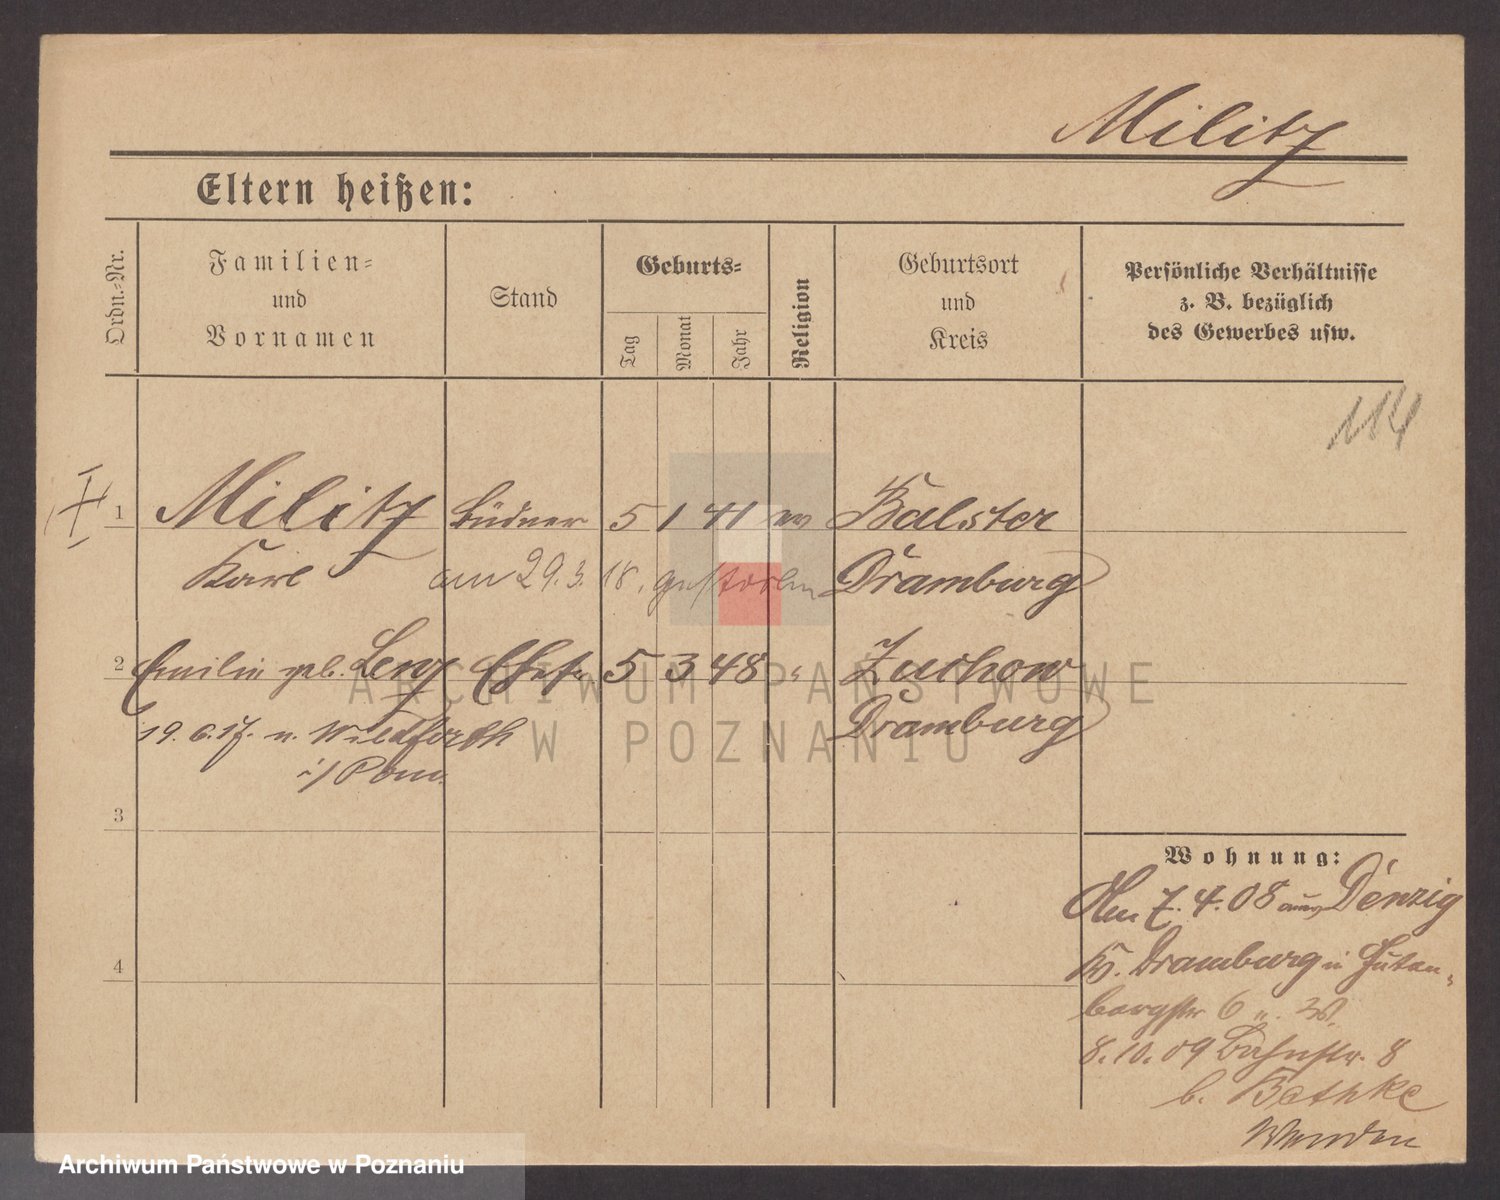 Militz
Eltern heißen:
Ordn.-Nr.
Familien-
und
Vornamen
Stand
Geburts-
Tag
Monat
Jahr
Religion
Geburtsort
und
Kreis
Persönliche Verhältnisse
z. B. bezüglich
des Gewerbes usw.
114
1 Militz Büdner 5 1 41 ev Balster
Karl am 29.3.18. gestorben Dramburg
2 Emilie geb. Ehefr. 5 3 48 " Zuchow
19.6.17. n. Dramburg
i/Pom.
3
4
Wohnung:
Am 7.4.08 aus Denzig
Kr. Dramburg n Guten-
bergstr 6 II. W.
8.10.09 Bahnstr. 8
b. Bethke
Wenden
ARCHIWUM PAŃSTWOWE
W POZNANIU
Archiwum Państwowe w Poznaniu